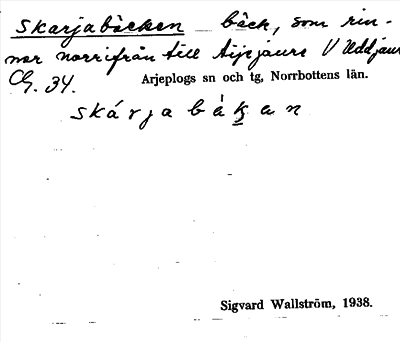 Skarjabäcken bäck, som rin-
ner norrifrån till V Uddjaur
Ch. 34. Arjeplogs sn och tg, Norrbottens län.
skárjabákan
Sigvard Wallström, 1938.